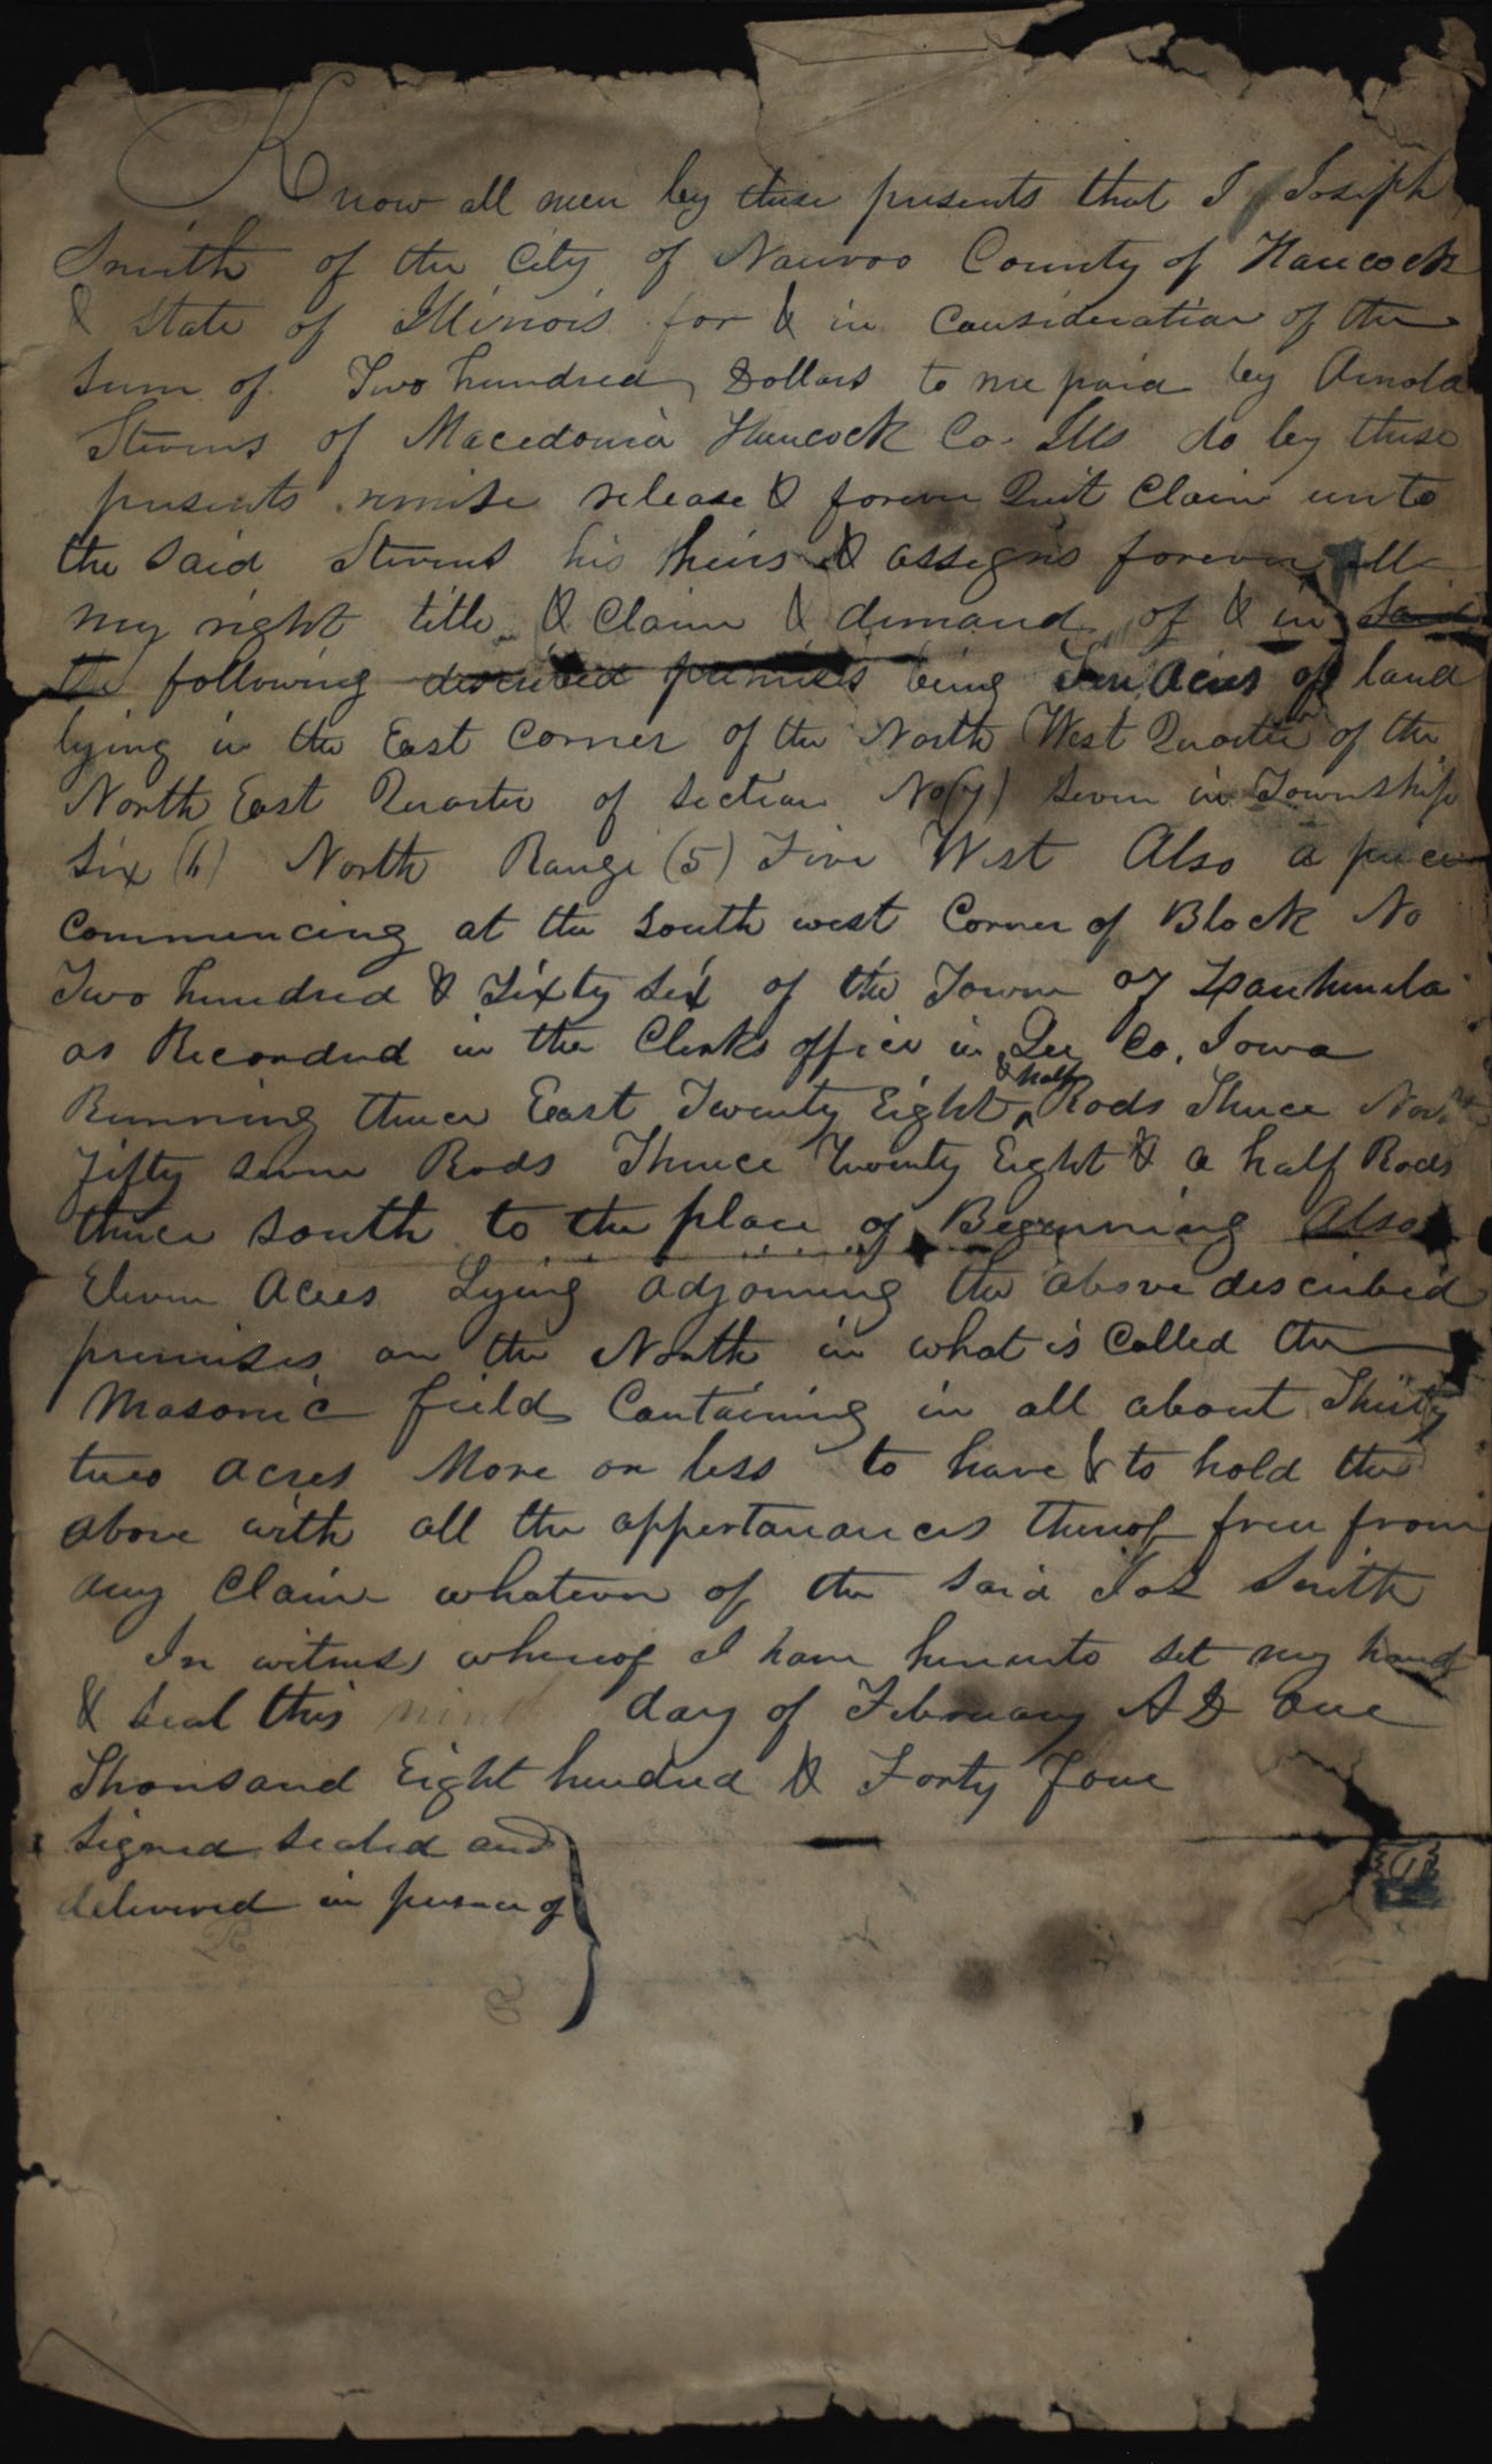 Know all men by these presents that I Joseph
Smith of the City of Nauvoo County of Hancock
& State of Illinois for & in Consideration of the
Sum of Two hundred Dollars to me paid by Arnold
Stevens of Macedonia Hancock Co. Ills do by these
presents remise release & forever Quit Claim unto
the said Stevens his heirs & assigns forever all
my right title & Claim & demand of & in said
the following described premises being Ten Acres of land
lying in the East Corner of the North West Quarter of the
North East Quarter of Section No (7) Seven in Township
Six (6) North Range (5) Five West Also a piece
Commencing at the South west Corner of Block No
Two hundred & Sixty Six of the Town of
as Recorded in the Clerks office in Lee Co. Iowa
Running thence East Twenty Eight & half Rods Thence North
Fifty Seven Rods Thence Twenty Eight & a half Rods
thence South to the place of Beginning Also
Eleven Acres Lying Adjoining the above described
premises on the North in what is Called the
Masonic field Containing in all about Thirty
two acres More or less to have & to hold the
above with all the thereof free from
any Claim whatever of the said Jos Smith
In witness whereof I have hereunto set my hand
& seal this ninth day of February A D One
Thousand Eight hundred & Forty Four
Signed sealed and
delivered in presence of